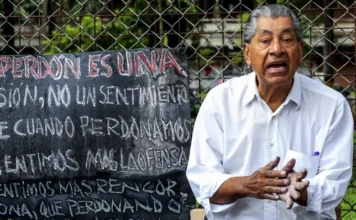 PERDON ES UNA
SIÓN, NO UN SENTIMIENTO
E CUANDO PERDONAMOS
ENTIMOS MAS LA OFENSA
ENTIMOS MAS RENCOR
ONA, QUE PERDONAND